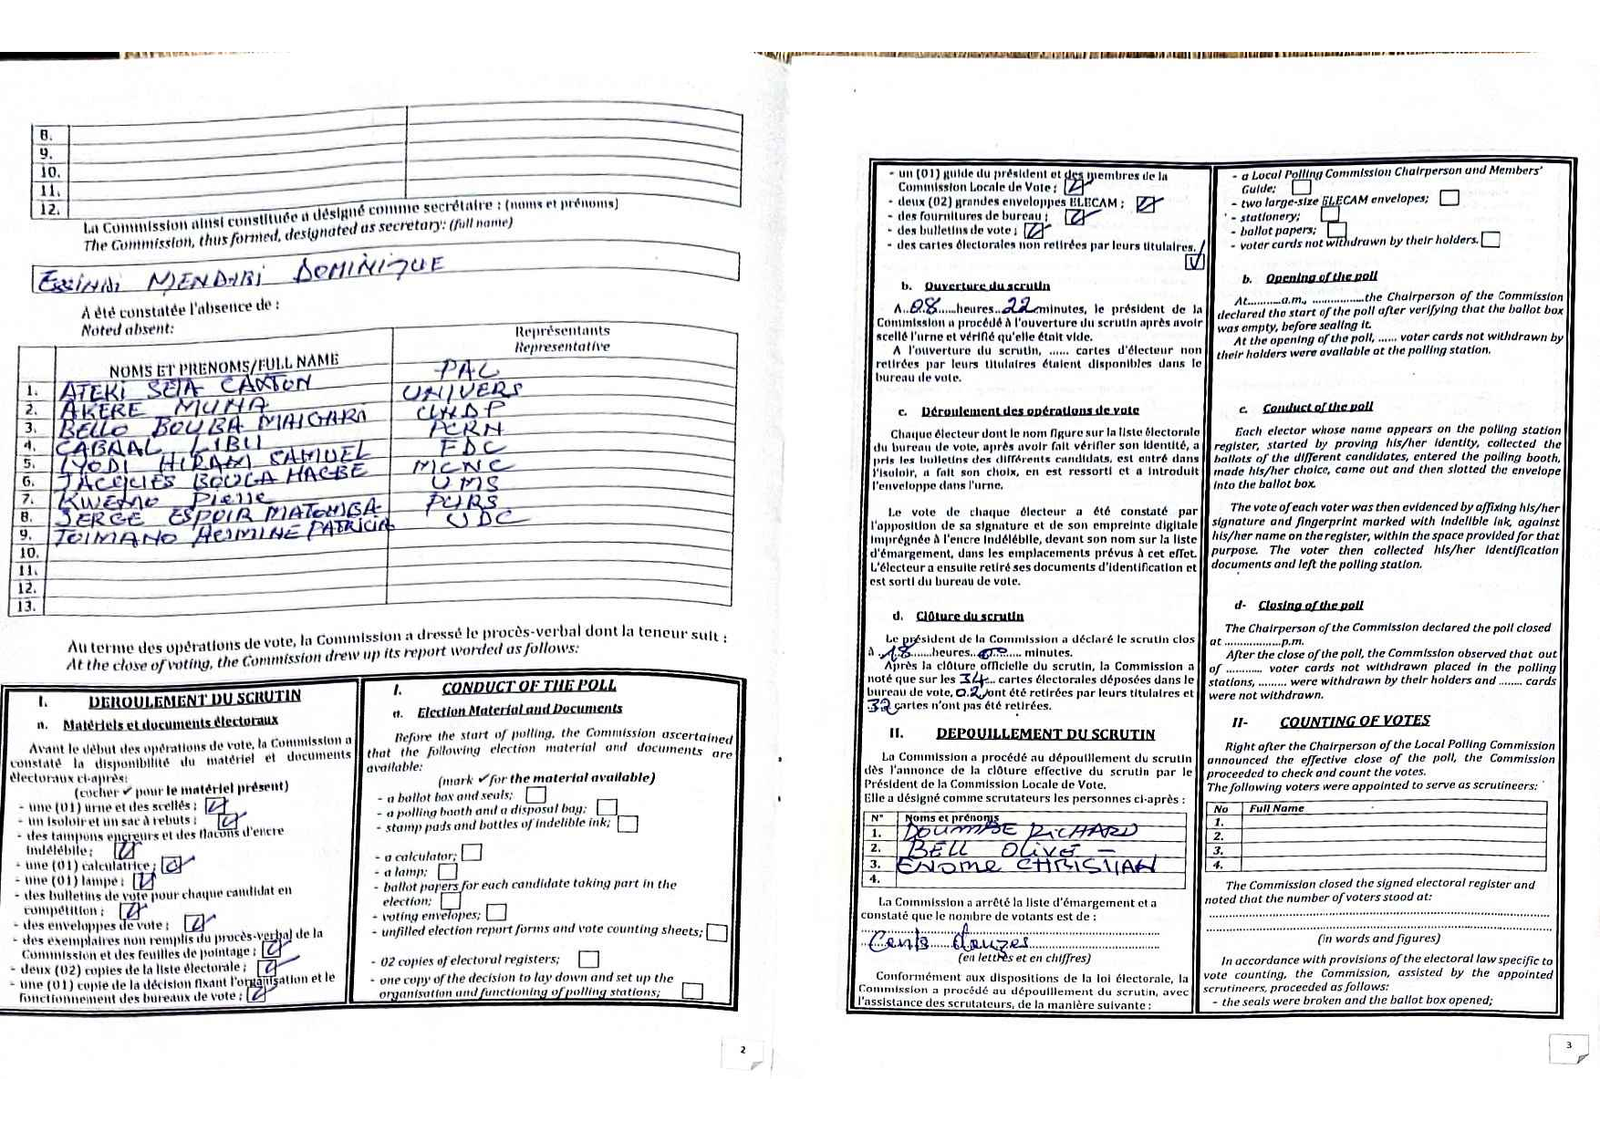 8.
9.
10.
11.
12.
La Commission ainsi constituée a désigné comme secrétaire : (noms et prénoms)
The Commission, thus formed, designated as secretary: (full name)
DOMINIQUE
A été constatée l'absence de :
Noted absent:
NOMS ET PRENOMS/FULL NAME
Représentants
Representative
1. ATEKI SETA CAXTON PAL
2. AKERE MUNA UNIVERS
3. BELLO BOUBA MAIGARI UNDP
4. CABRAL LIBII PCRN
5. IYODI HIRAM SAMUEL FDC
6. JACQUES BOUGA HAGBE MCNC
7. KWEMO Pierre UMS
8. SERGE ESPOIR MATOMBA PURS
9. TOIMANO HERMINE PATRICIA UDC
10.
11.
12.
13.
Au terme des opérations de vote, la Commission a dressé le procès-verbal dont la teneur suit :
At the close of voting, the Commission drew up its report worded as follows:
I. DEROULEMENT DU SCRUTIN
a. Matériels et documents électoraux
Avant le début des opérations de vote, la Commission a
constaté la disponibilité du matériel et documents
électoraux ci-après:
(cocher ✔ pour le matériel présent)
- une (01) urne et des scellés ;
- un isoloir et un sac à rebuts ;
- des tampons encreurs et des flacons d'encre
indélébile ;
- une (01) calculatrice ;
- une (01) lampe ;
- des bulletins de vote pour chaque candidat en
compétition ;
- des enveloppes de vote ;
- des exemplaires non remplis du procès-verbal de la
Commission et des feuilles de pointage ;
- deux (02) copies de la liste électorale ;
- une (01) copie de la décision fixant l'organisation et le
fonctionnement des bureaux de vote ;
I. CONDUCT OF THE POLL
a. Election Material and Documents
Before the start of polling, the Commission ascertained
that the following election material and documents are
available:
(mark ✔ for the material available)
- a ballot box and seals;
- a polling booth and a disposal bag;
- stamp pads and bottles of indelible ink;
- a calculator;
- a lamp;
- ballot papers for each candidate taking part in the
election;
- voting envelopes;
- unfilled election report forms and vote counting sheets;
- 02 copies of electoral registers;
- one copy of the decision to lay down and set up the
organisation and functioning of polling stations;
2
- un (01) guide du président et des membres de la
Commission Locale de Vote ;
- deux (02) grandes enveloppes ELECAM ;
- des fournitures de bureau ;
- des bulletins de vote ;
- des cartes électorales non retirées par leurs titulaires.
b. Ouverture du scrutin
A..08......heures..22..minutes, le président de la
Commission a procédé à l'ouverture du scrutin après avoir
scellé l'urne et vérifié qu'elle était vide.
A l'ouverture du scrutin, ...... cartes d'électeur non
retirées par leurs titulaires étaient disponibles dans le
bureau de vote.
c. Déroulement des opérations de vote
Chaque électeur dont le nom figure sur la liste électorale
du bureau de vote, après avoir fait vérifier son identité, a
pris les bulletins des différents candidats, est entré dans
l'isoloir, a fait son choix, en est ressorti et a introduit
l'enveloppe dans l'urne.
Le vote de chaque électeur a été constaté par
l'apposition de sa signature et de son empreinte digitale
imprégnée à l'encre indélébile, devant son nom sur la liste
d'émargement, dans les emplacements prévus à cet effet.
L'électeur a ensuite retiré ses documents d'identification et
est sorti du bureau de vote.
d. Clôture du scrutin
Le président de la Commission a déclaré le scrutin clos
à .18......heures..00.... minutes.
Après la clôture officielle du scrutin, la Commission a
noté que sur les 34... cartes électorales déposées dans le
bureau de vote, 02 ont été retirées par leurs titulaires et
32 cartes n'ont pas été retirées.
II. DEPOUILLEMENT DU SCRUTIN
La Commission a procédé au dépouillement du scrutin
dès l'annonce de la clôture effective du scrutin par le
Président de la Commission Locale de Vote.
Elle a désigné comme scrutateurs les personnes ci-après :
N° Noms et prénoms
1. DOUMBE RICHARD
2. BELL OLIVE -
3. ENOME CHRISTIAN
4.
La Commission a arrêté la liste d'émargement et a
constaté que le nombre de votants est de :
Cents douzes
(en lettres et en chiffres)
Conformément aux dispositions de la loi électorale, la
Commission a procédé au dépouillement du scrutin, avec
l'assistance des scrutateurs, de la manière suivante :
- a Local Polling Commission Chairperson and Members'
Guide;
- two large-size ELECAM envelopes;
- stationery;
- ballot papers;
- voter cards not withdrawn by their holders.
b. Opening of the poll
At...........a.m., .................the Chairperson of the Commission
declared the start of the poll after verifying that the ballot box
was empty, before sealing it.
At the opening of the poll, ...... voter cards not withdrawn by
their holders were available at the polling station.
c. Conduct of the poll
Each elector whose name appears on the polling station
register, started by proving his/her identity, collected the
ballots of the different candidates, entered the polling booth,
made his/her choice, came out and then slotted the envelope
into the ballot box.
The vote of each voter was then evidenced by affixing his/her
signature and fingerprint marked with indelible ink, against
his/her name on the register, within the space provided for that
purpose. The voter then collected his/her identification
documents and left the polling station.
d- Closing of the poll
The Chairperson of the Commission declared the poll closed
at ................p.m.
After the close of the poll, the Commission observed that out
of ........... voter cards not withdrawn placed in the polling
stations, ........ were withdrawn by their holders and ........ cards
were not withdrawn.
II- COUNTING OF VOTES
Right after the Chairperson of the Local Polling Commission
announced the effective close of the poll, the Commission
proceeded to check and count the votes.
The following voters were appointed to serve as scrutineers:
No Full Name
1.
2.
3.
4.
The Commission closed the signed electoral register and
noted that the number of voters stood at:
(in words and figures)
In accordance with provisions of the electoral law specific to
vote counting, the Commission, assisted by the appointed
scrutineers, proceeded as follows:
- the seals were broken and the ballot box opened;
3